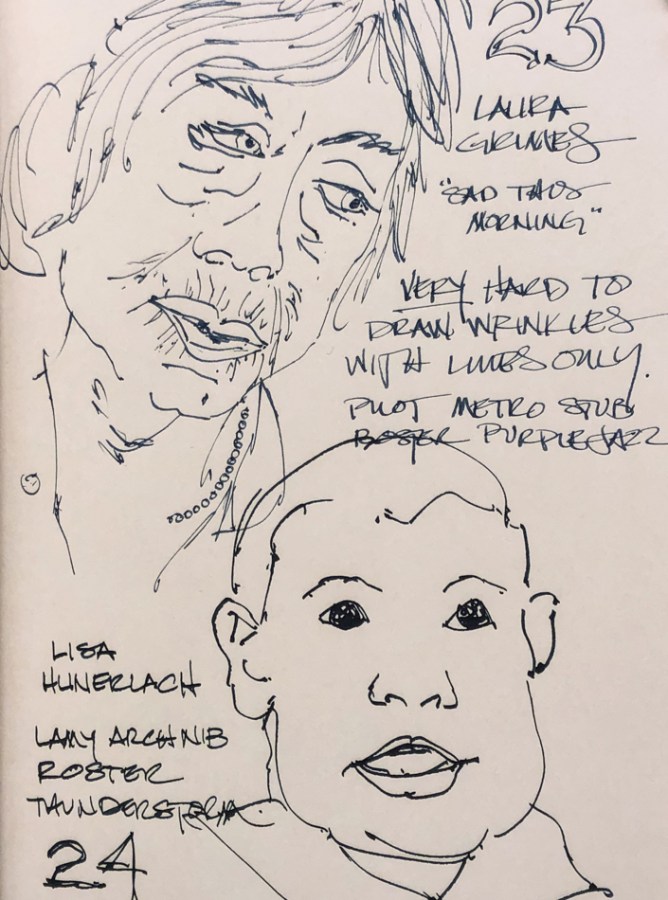 23
LAURA
GRIMES
"SAD THIS
MORNING"
VERY HARD TO
DRAW WRINKLES
WITH LINES ONLY.
PILOT METRO STUB
ROSTER PURPLE JAZZ
LISA
HUNERLACH
LAMY ARCH NIB
ROSTER
THUNDERSTORM
24